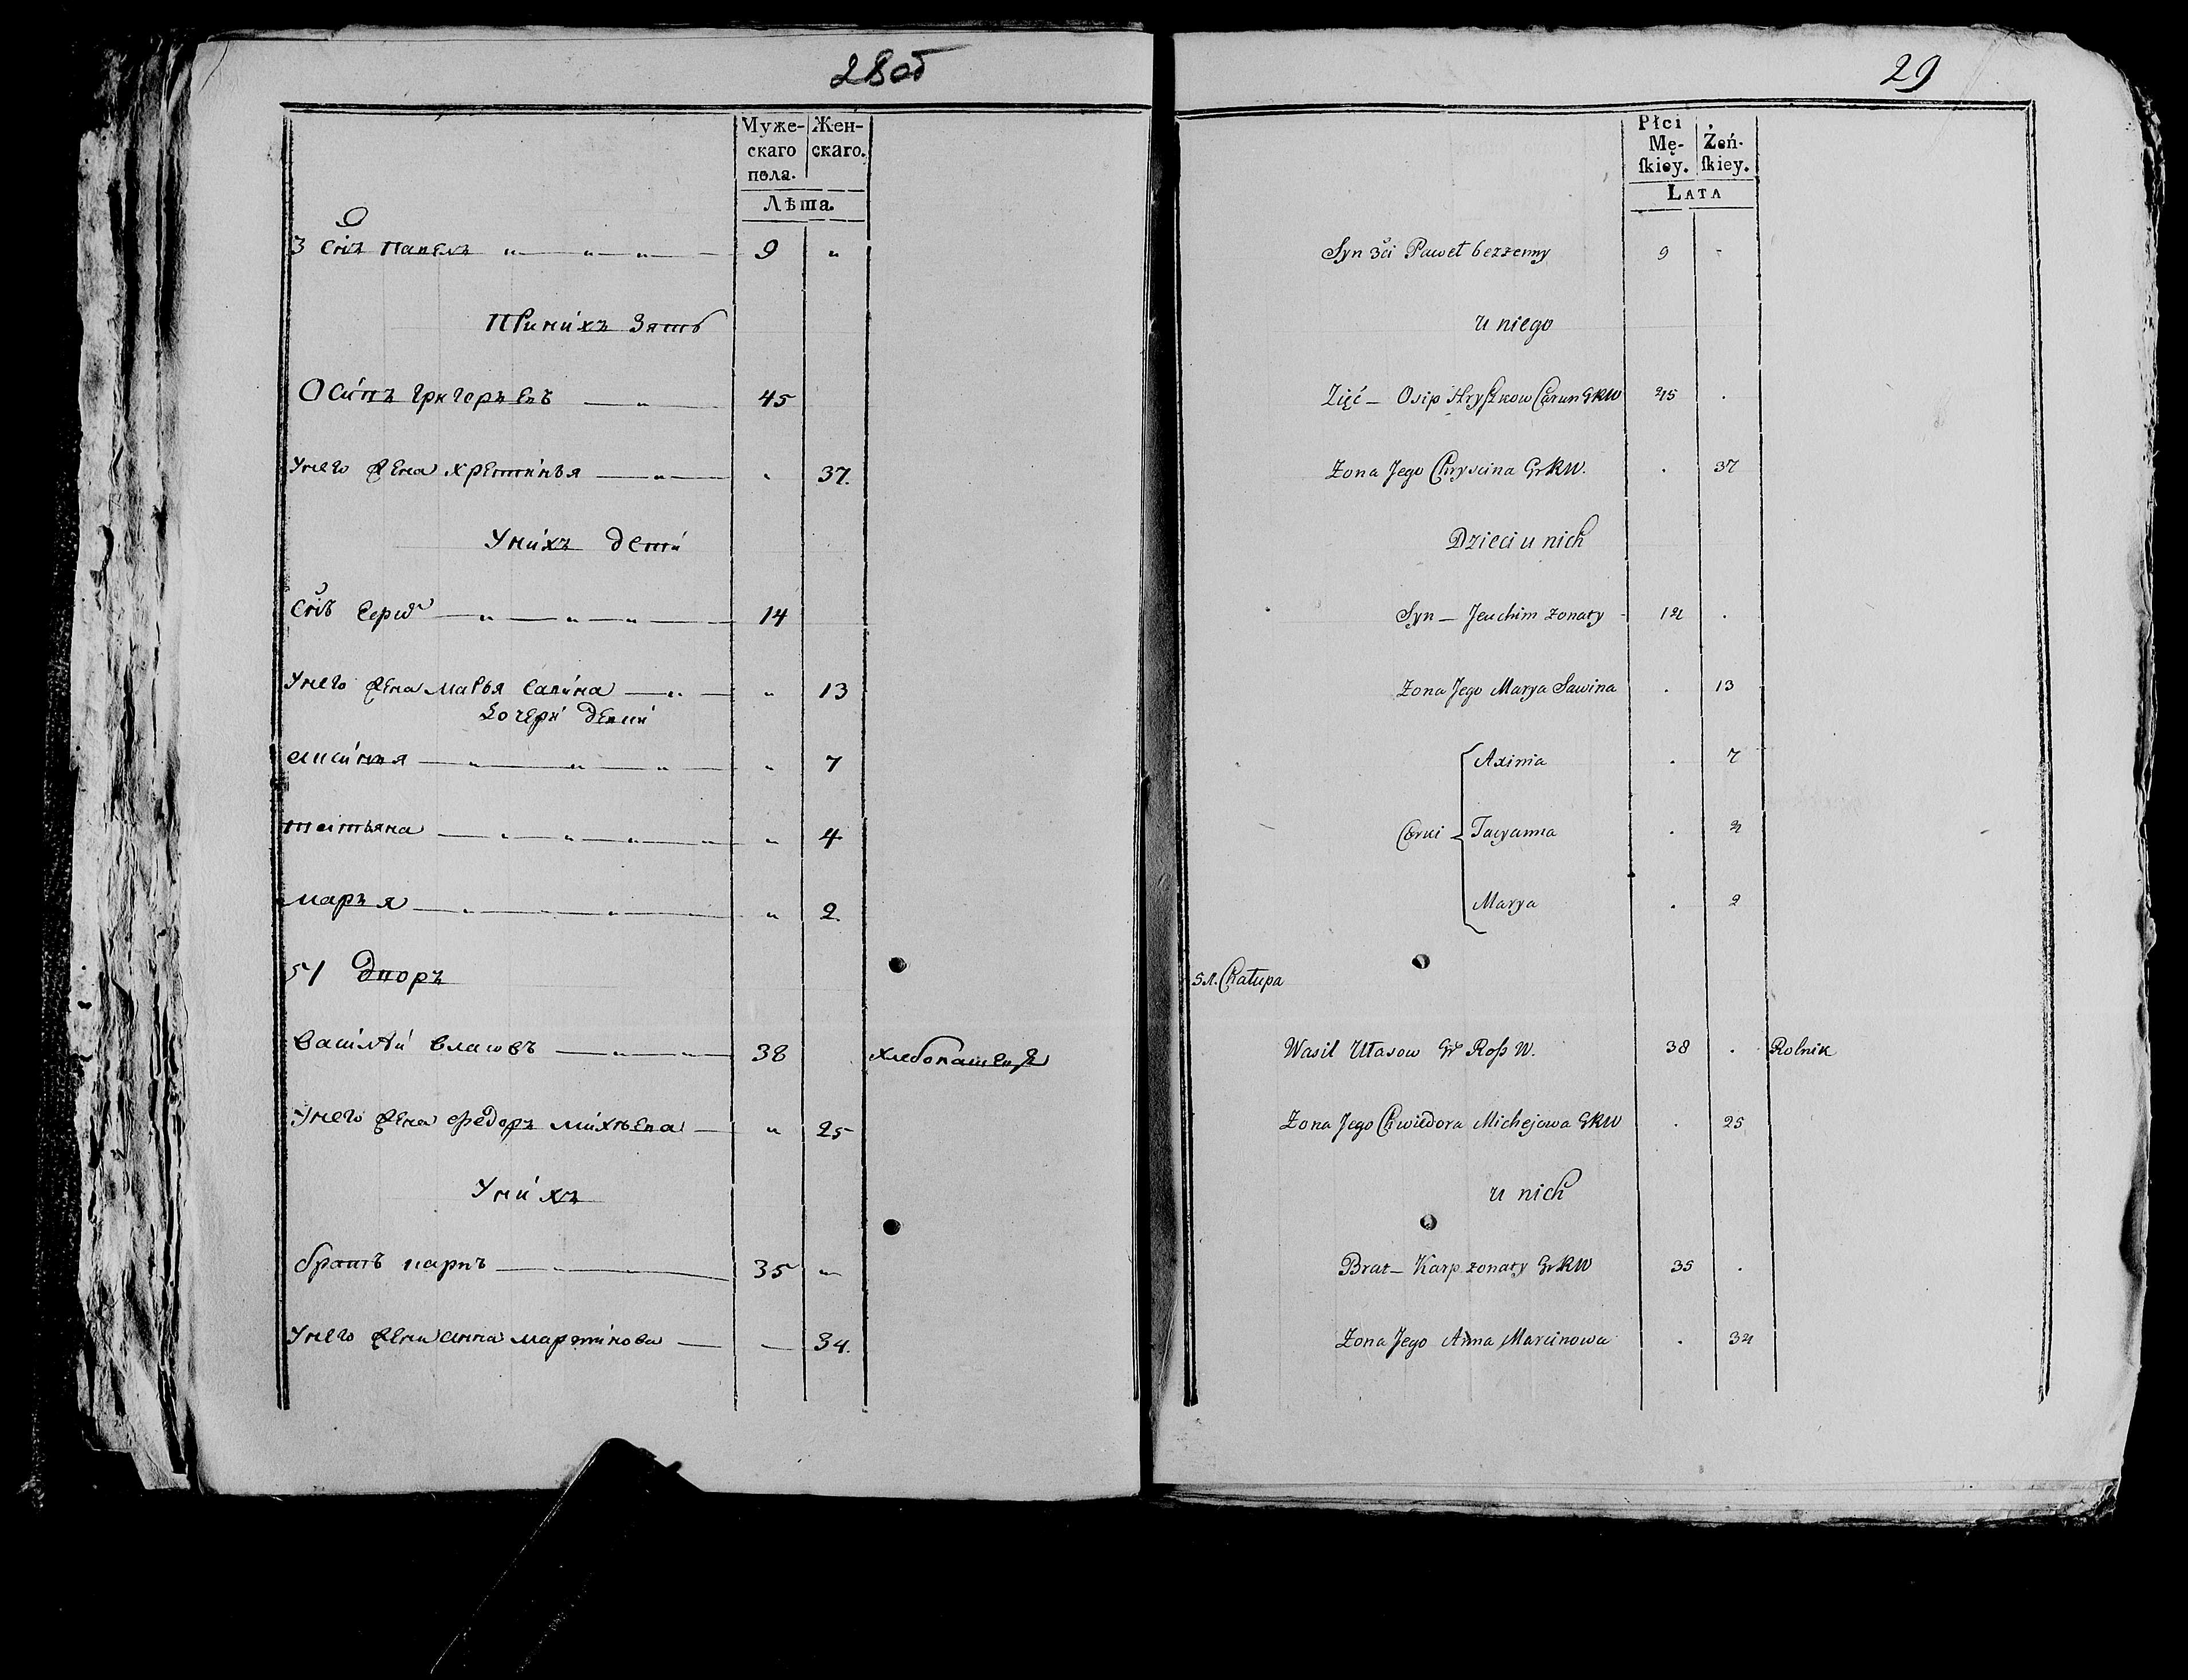 28об
Муже- Жен-
скаго скаго.
пола.
Лѣта.
3 Снъ Павелъ 9 "
При нихъ Зять
Осипъ Григорьевъ 45
У него жена Хрестинья " 37.
У нихъ дети
Снъ 14
У него жена Марья Савина " 13
дочери девки
аксинья " 7
татьяна " 4
марья " 2
51 Дворъ
Василѣй Власовъ 38 Хлебопашецъ
У него жена Федоръ Михѣева " 25
У нихъ
братъ карпъ 35 "
У него жена анна мартинова 34.
29
Płci Żeń-
Mę- skiey.
skiey.
LATA
Syn 3ci Paweł bezzenny 9 -
u niego
Zięć – Osip GRW 45 .
Zona Jego Chryscina GrRW. . 37
Dzieci u nich
Syn – Jeuchim zonaty 14 .
Zona Jego Marya Sawina . 13
Axinia . 7
Córki Tacyanna . 4
Marya . 2
51. Chałupa
Wasil Ułasow Gr Roß W. 38 . Rolnik
Zona Jego Chwiedora Michejowa GRW . 25
u nich
Brat – Karp zonaty GrRW 35 .
Zona Jego Anna Marcinowa . 34